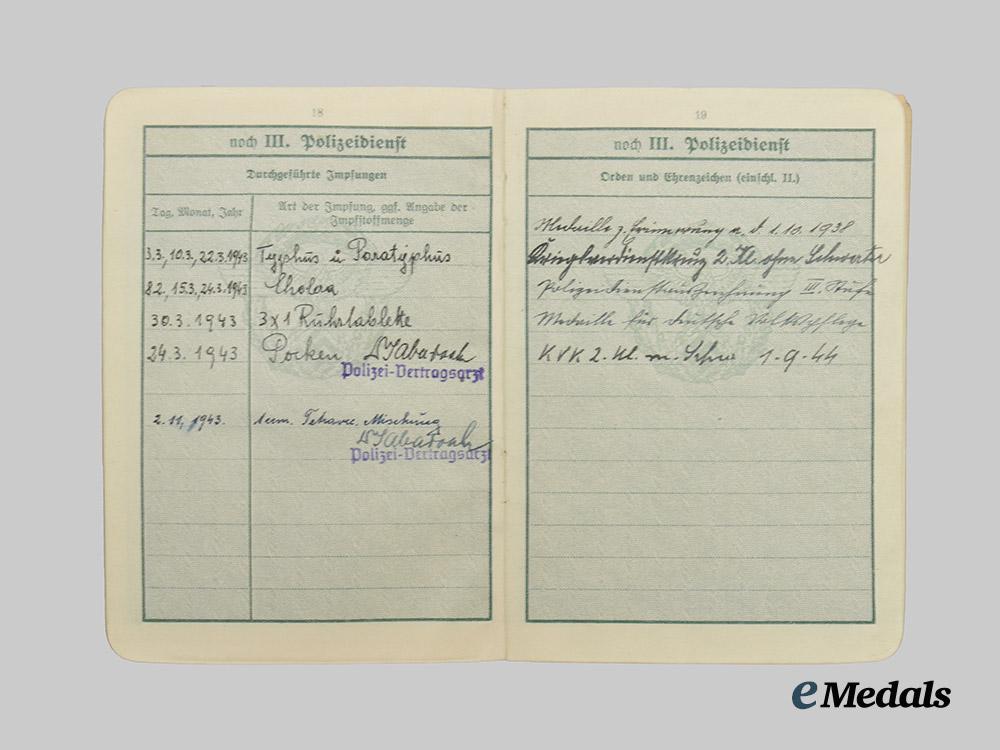 18
noch III. Polizeidienst
Durchgeführte Impfungen
Tag, Monat, Jahr
Art der Impfung, ggf. Angabe der
Impfstoffmenge
3.3, 10.3, 22.3.1943 Typhus u Paratyphus
8.2, 15.3, 24.3.1943 Cholera
30.3.1943 3x1 Ruhrtablette
24.3.1943 Pocken
Polizei-Vertragsarzt
2.11.1943. 1ccm. Tetravac. Mischung
Polizei-Vertragsarzt
19
noch III. Polizeidienst
Orden und Ehrenzeichen (einschl. II.)
Medaille z. Erinnerung a. d. 1.10.1938
Kriegsverdienstkreuz 2. Kl. ohne Schwerter
Polizeidienstauszeichnung III. Stufe
Medaille für deutsche Volkspflege
KVK 2. Kl. m. Schw 1-9-44
eMedals